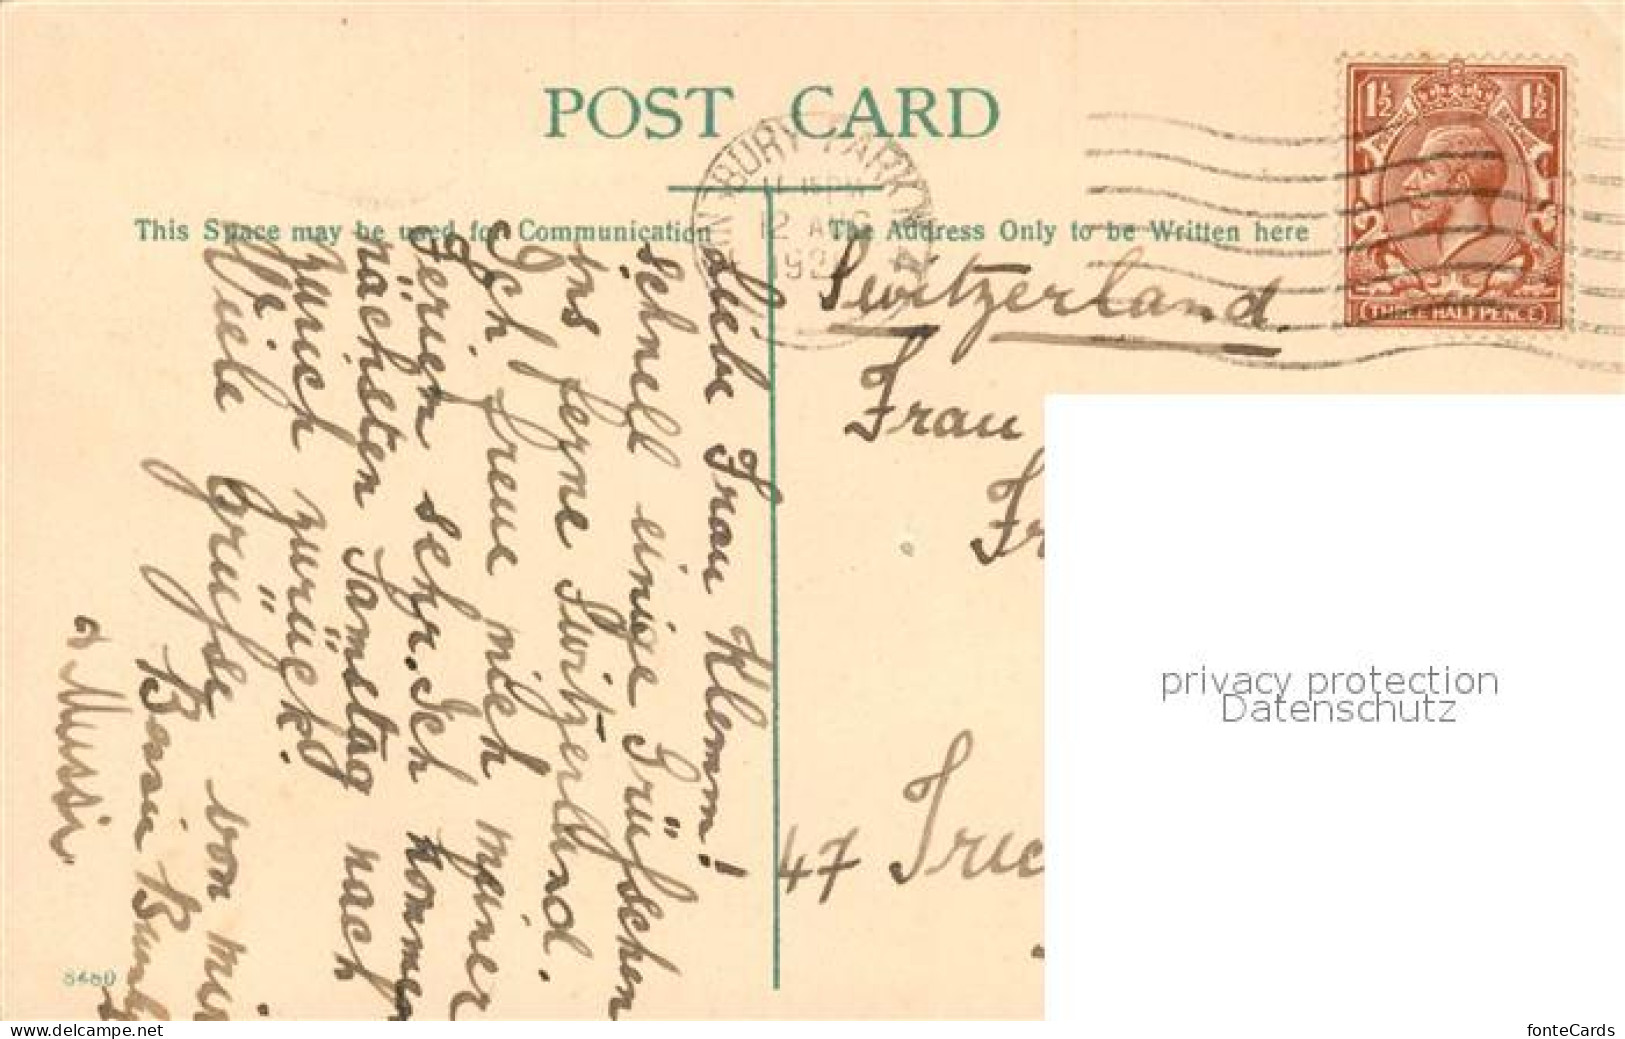 POST CARD
This Space may be used for Communication
The Address Only to be Written here
BURY PARK
11 15PM
12 AUG
192
1½ 1½
THREE HALFPENCE
Liebe Frau Klemm!
schnell einige Grüsschen
ins ferne Switzerland.
Ich freue mich meiner
Ferien sehr. Ich komme
nächsten Samstag nach
zurück.
Viele Grüsse von mir
8480
Switzerland.
Frau
Fr
47
privacy protection
Datenschutz
www.delcampe.net
fonteCards